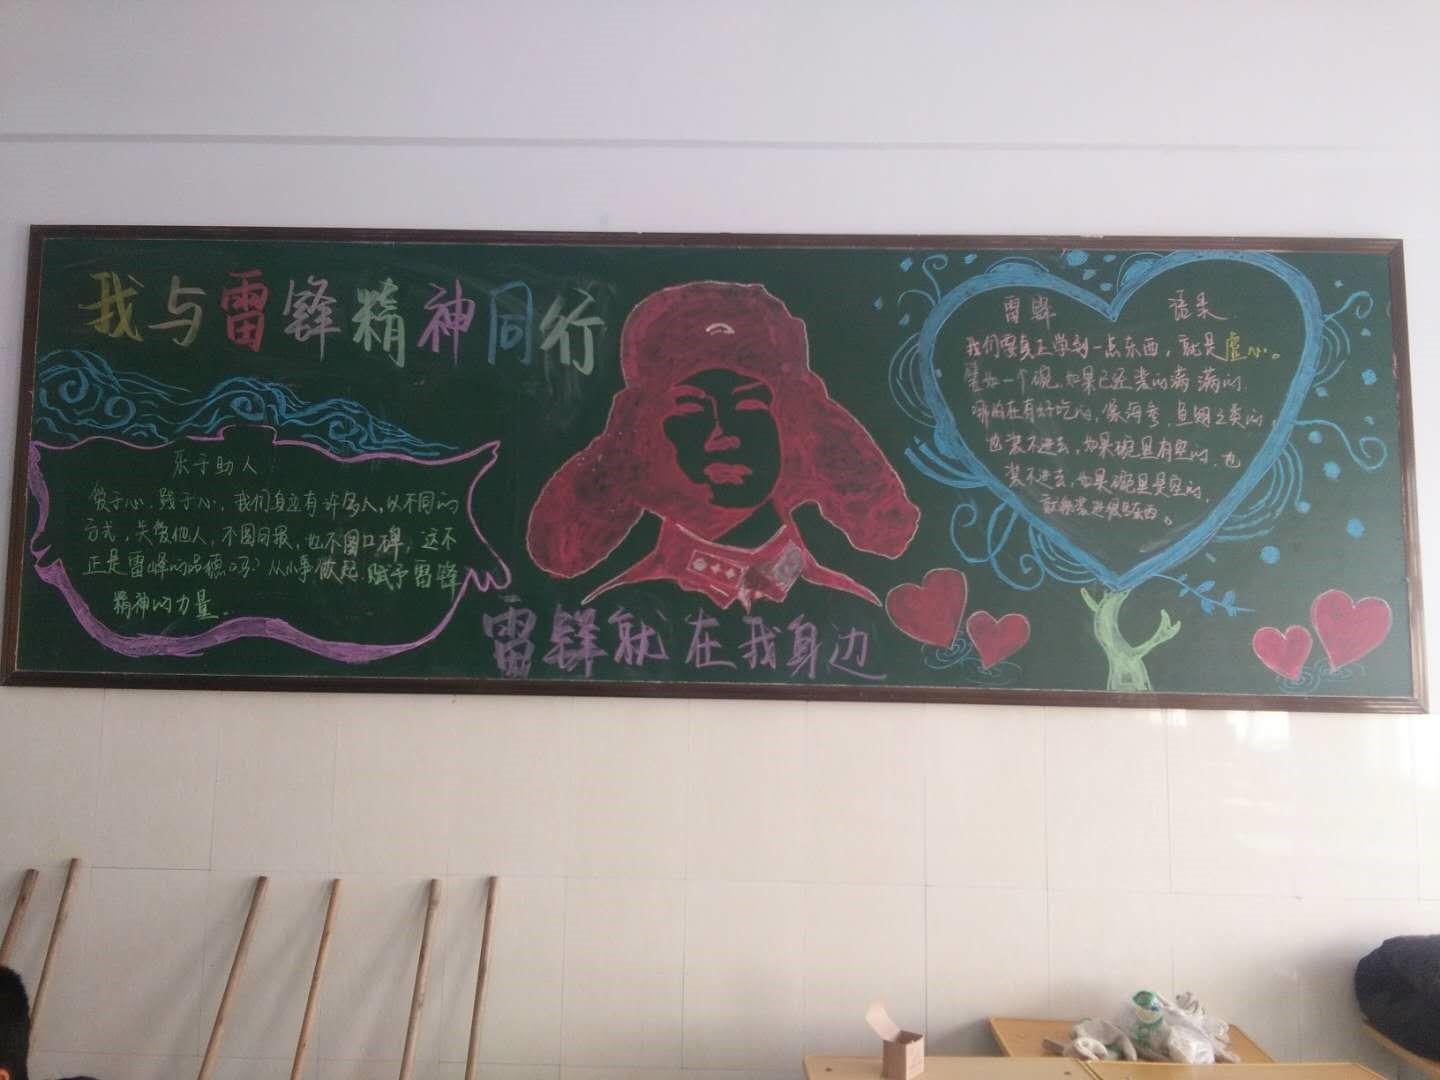 我与雷锋精神同行
乐于助人
发于心,践于心,我们身边有许多人,以不同的
方式,关爱他人,不图回报,也不图口碑,这不
正是雷峰的品德吗?从小事做起,赋予雷锋
精神的力量。
雷锋就在我身边
雷锋 语录
我们要真正学到一点东西,就是虚心。
譬如一个碗,如果已经装的满满的,
哪怕在有好吃的,像海参,鱼翅之类的,
也装不进去,如果碗里有空的,也
装不进去,如果碗里是空的,
就能装进很多东西。